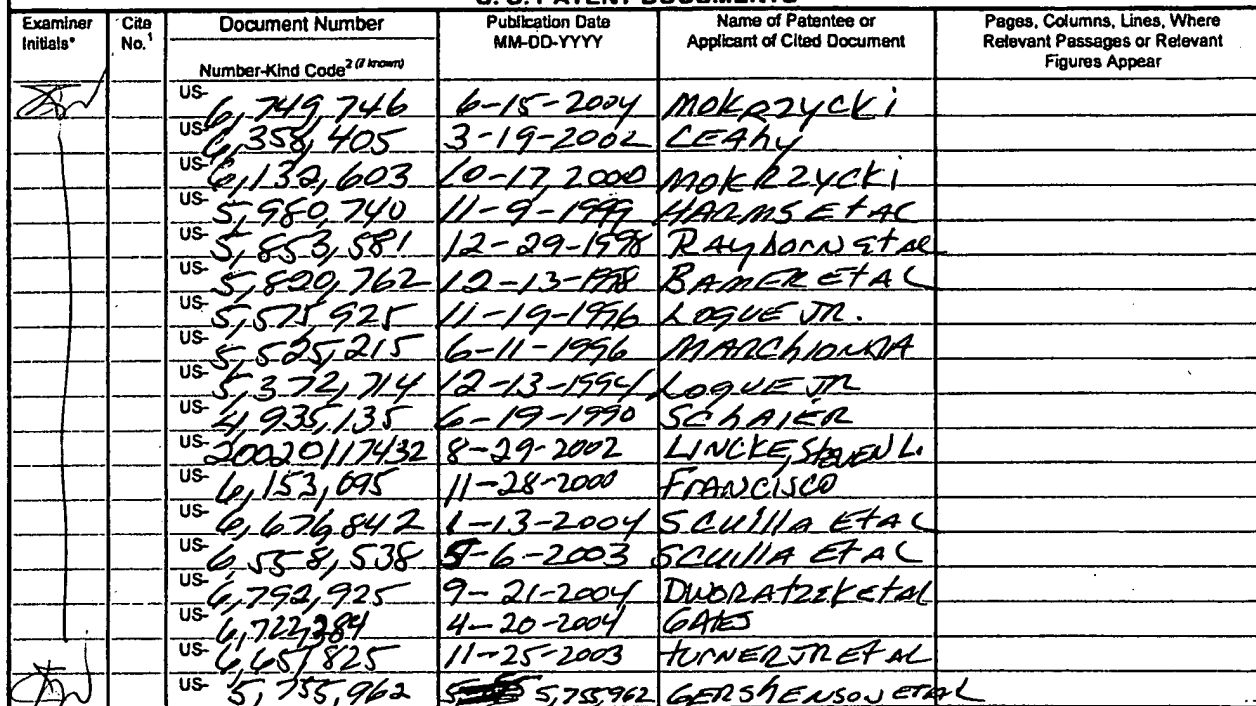 U. S. PATENT DOCUMENTS
Examiner Initials* Cite No.1 Document Number Publication Date MM-DD-YYYY Name of Patentee or Applicant of Cited Document Pages, Columns, Lines, Where Relevant Passages or Relevant Figures Appear
Number-Kind Code2 (if known)
US- 6,749,746 6-15-2004 MOKRZYCKi
US- 6,358,405 3-19-2002 LEAhy
US- 6,132,603 10-17,2000 MOKRZYCKi
US- 5,980,740 11-9-1999 HARMS Et AL
US- 5,853,581 12-29-1998 RAYbORN et al
US- 5,820,762 12-13-1998 BAMER Et AL
US- 5,575,925 11-19-1996 LOGUE JR.
US- 5,525,215 6-11-1996 MARChIONDA
US- 5,372,714 12-13-1994 LOGUE JR
US- 4,935,135 6-19-1990 SChAIER
US- 20020117432 8-29-2002 LINCKE, STEVEN L.
US- 6,153,095 11-28-2000 FRANCISCO
US- 6,676,842 1-13-2004 SCUIllA Et AL
US- 6,558,538 5-6-2003 SCUIllA Et AL
US- 6,792,925 9-21-2004 DWORATZEK et al
US- 6,722,384 4-20-2004 GATES
US- 6,651,825 11-25-2003 tURNER JR Et AL
US- 5,755,962 5,755,962 GERShENSON Et AL